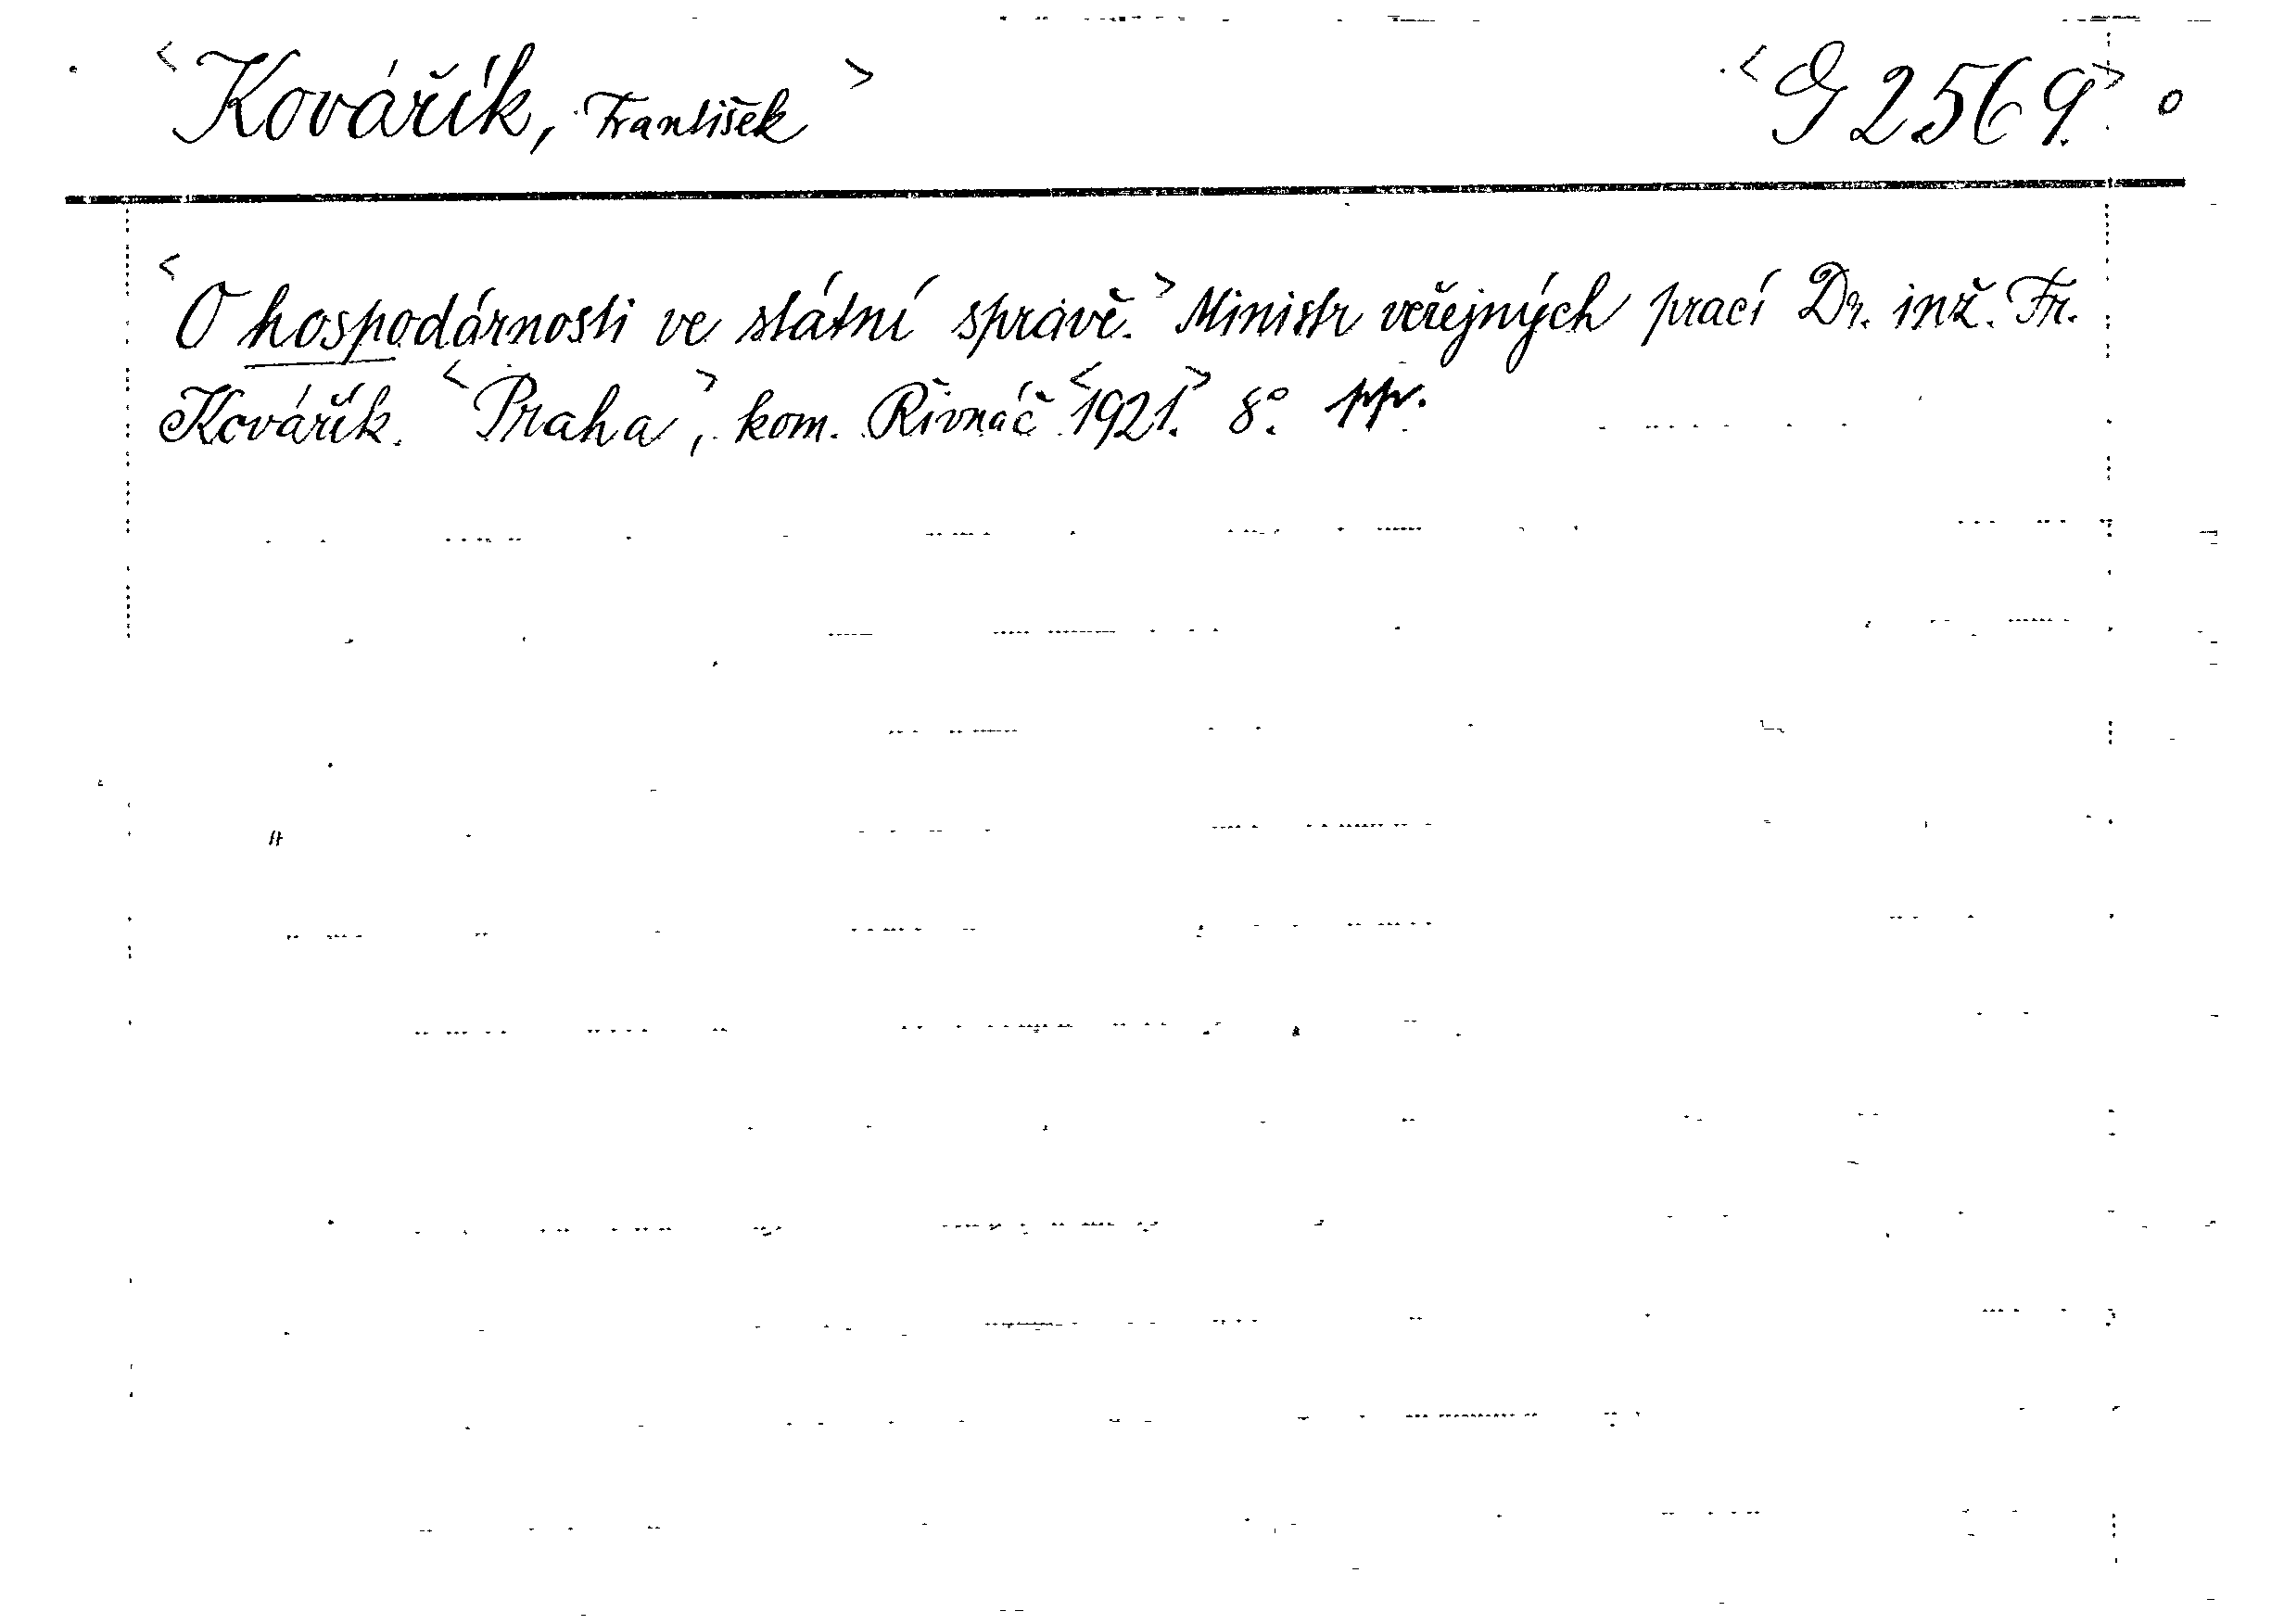 <Kovářík, František> <G 2569.>
<O hospodárnosti ve státní správě.> Ministr veřejných prací Dr. inž. Fr.
Kovářík. <Praha>, kom. Řivnáč <1921.> 8°. pp.